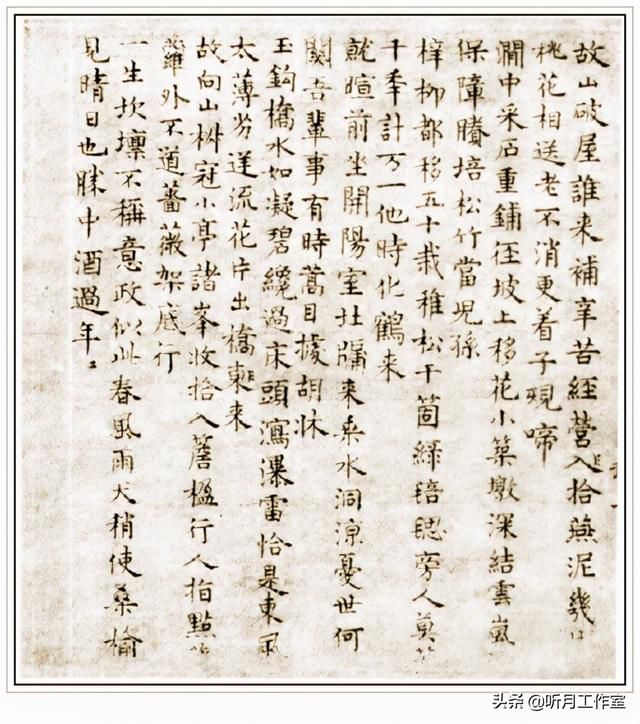 故山破屋誰来補辛苦経營入拾燕泥幾
桃花相送老不消更着子規啼
澗中采石重鋪径坡上移花小築墩深結雲嵐
保障賸培松竹當児孫
梓柳都移五十栽稚松千箇緑毸旁人莫
千秊計万一他時化鶴来
就暄前坐開陽室壮牖来乗水洞凉憂世何
関吾輩事有時蒿目據胡牀
玉鈎橋水如凝碧繞過床頭瀉瀑雷恰是東風
太薄劣送流花片出橋東来
故向山樹冠小亭諸峯收拾入簷楹行人指點
蘿外不道薔薇架底行
一生坎壈不稱意政似此春風雨天稍使桑榆
見晴日也勝中酒過年〻
头条 @听月工作室